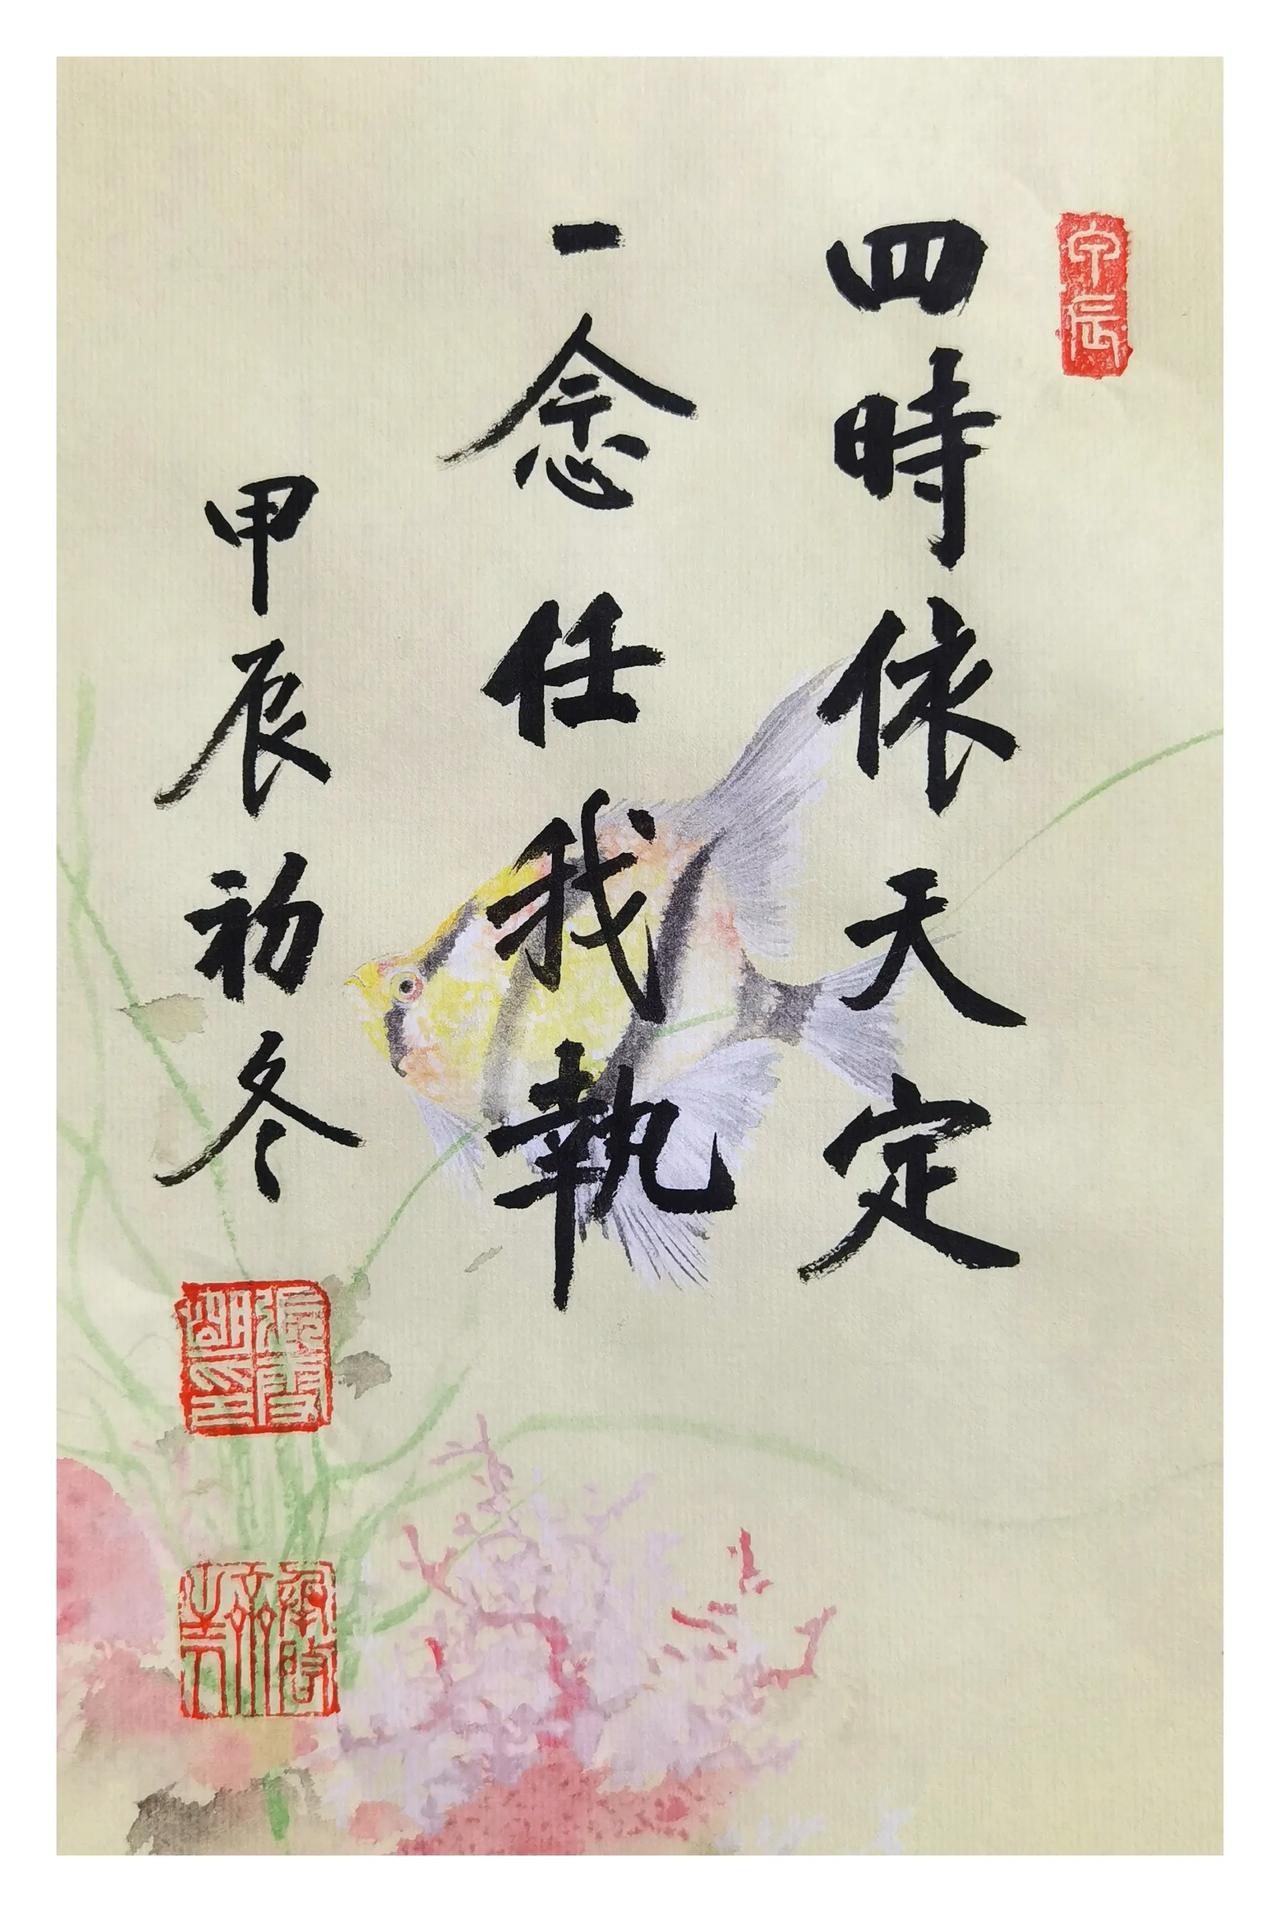 四時依天定
一念任我執
甲辰初冬
甲辰